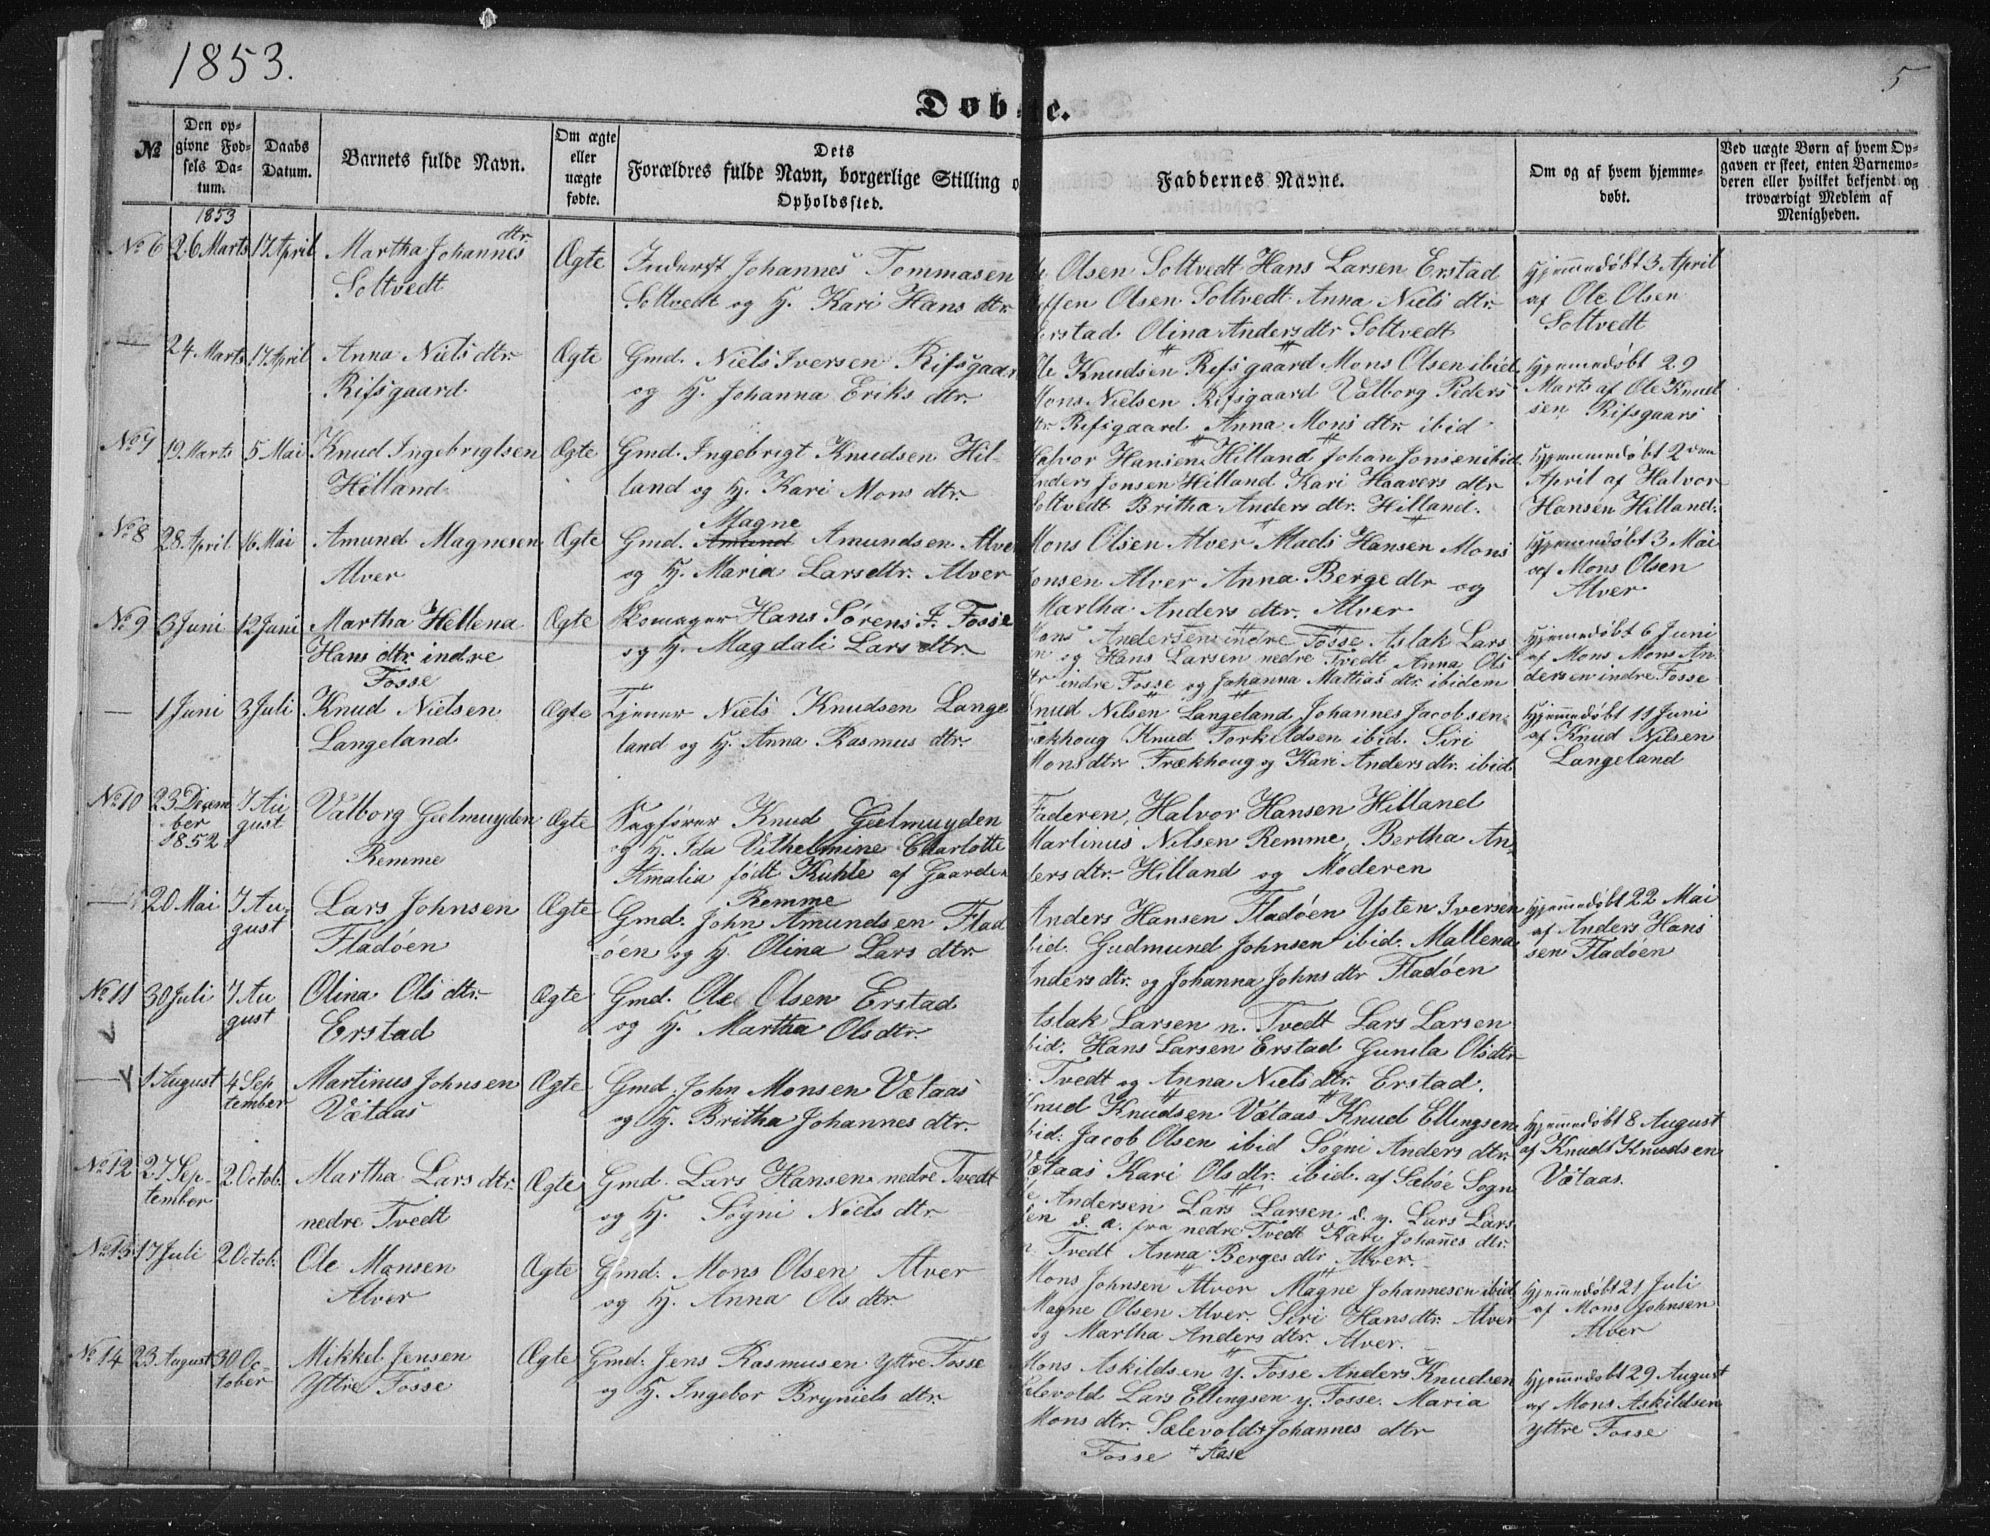 1853.
5
Døbte.
№
Den op-
givne Fød-
sels Da-
tum.
Daabs
Datum.
Barnets fulde Navn.
Om ægte
eller
uægte
fødte.
Dets
Forældres fulde Navn, borgerlige Stilling o
Opholdssted.
Faddernes Navne.
Om og af hvem hjemme-
døbt.
Ved uægte Børn af hvem Op-
gaven er skeet, enten Barnemo-
deren eller hvilket bekjendt og
troværdigt Medlem af
Menigheden.
1853
No 6 26 Marts 17 April Martha Johannes dtr.
Soltvedt
Ægte
Inderst Johannes Tommasen
Soltvedt og H. Kari Hans dtr.
Olsen Soltvedt Hans Larsen Erstad
ffen Olsen Soltvedt Anna Niels dtr.
Erstad Olina Anders dtr Soltvedt
Hjemmedøbt 3 April
af Ole Olsen
Soltvedt
— 24 Marts 17 April Anna Niels dtr.
Rifsgaard
Ægte
Gmd. Niels Iversen Rifsgaar
og H. Johanna Eriks dtr.
Ole Knudsen Rifsgaard Mons Olsen ibid
Mons Nielsen Rifsgaard Valborg Peders
dtr Rifsgaard Anna Mons dtr. ibid
Hjemmedøbt 29
Marts af Ole Knud
sen Rifsgaard
No 7 19 Marts 5 Mai Knud Ingebrigtsen
Hilland
Ægte
Gmd. Ingebrigt Knudsen Hil-
land og H. Kari Mons dtr.
Halvor Hansen Hilland Johan Jonsen ibid
Anders Jonsen Hilland Kari Haavers dtr
Soltvedt Britha Anders dtr. Hilland.
Hjemmedøbt 2den
April af Halvor
Hansen Hilland.
No 8 28 April 16 Mai Amund Magnesen
Alver
Ægte
Magne
Gmd. Amund Amundsen Alver
og H. Maria Lars dtr. Alver
Mons Olsen Alver Mads Hansen Mons
Monsen Alver Anna Berge dtr og
Martha Anders dtr. Alver
Hjemmedøbt 3 Mai
af Mons Olsen
Alver
No 9 3 Juni 12 Juni Martha Hellena
Hans dtr. indre
Fosse
Ægte
Skomager Hans Sørens I. Fosse
og H. Magdali Lars dtr
Mons Andersen indre Fosse Aslak Lars
en og Hans Larsen nedre Tvedt Anna Ols
dtr indre Fosse og Johanna Mattias dtr. ibidem
Hjemmedøbt 6 Juni
af Mons Mons An-
dersen indre Fosse
— 1 Juni 3 Juli Knud Nielsen
Langeland
Ægte
Tjener Niels Knudsen Lange
land og H. Anna Rasmus dtr.
Knud Nilsen Langeland Johannes Jacobsen
Frækhoug Knud Torkildsen ibid. Siri
Mons dtr Frækhoug og Kari Anders dtr. ibid.
Hjemmedøbt 11 Juni
af Knud Nilsen
Langeland
No 10 23 Decem
ber
1852.
7 Au
gust
Valborg Geelmuyden
Remme
Ægte
Sagfører Knud Geelmuyden
og H. Ida Vilhelmine Charlotte
Amalia født Kuhle af Gaarden
Remme
Faderen, Halvor Hansen Hilland
Martinus Nilsen Remme, Bertha An-
ders dtr. Hilland og Moderen
— 20 Mai 7 Au
gust
Lars Johnsen
Fladøen
Ægte
Gmd. John Amundsen Flad
øen og H. Olina Lars dtr.
Anders Hansen Fladøen Ysten Iversen
ibid. Gudmund Johnsen ibid. Mallena
Anders dtr. og Johanna Johns dtr Fladøen
Hjemmedøbt 22 Mai
af Anders Hans
sen Fladøen
No 11 30 Juli 7 Au
gust
Olina Ols dtr.
Erstad
Ægte
Gmd. Ole Olsen Erstad
og H. Martha Ols dtr.
Aslak Larsen n. Tvedt Lars Larsen
ibid. Hans Larsen Erstad Gunla Ols dtr
. Tvedt og Anna Niels dtr. Erstad.
— 1 August 4 Sep
tember
Martinus Johnsen
Vætaas
Ægte
Gmd. John Monsen Vætaas
og H. Britha Johannes dtr.
Knud Knudsen Vætaas Knud Ellingsen
ibid. Jacob Olsen ibid Sogni Anders dtr.
Vætaas Kari Ols dtr. ibid. af Sæbøe Sogn
Hjemmedøbt 8 August
af Knud Knudsen
Vætaas.
No 12 27 Sep-
tember
2 Octob. Martha Lars dtr.
nedre Tvedt
Ægte
Gmd. Lars Hansen nedre Tvedt
og H. Sogni Niels dtr
Andersen Lars Larsen d. y. Lars Lars
sen d. a. fra nedre Tvedt Kari Johannes dtr.
n. Tvedt Anna Berges dtr. Alver.
No 13 17 Juli 2 Octob. Ole Monsen
Alver
Ægte
Gmd. Mons Olsen Alver
og H. Anna Ols dtr.
Mons Johnsen Alver Magne Johannesen ibid
Magne Olsen Alver. Siri Hans dtr. Alver
og Martha Anders dtr. Alver.
Hjemmedøbt 21 Juli
af Mons Johnsen
Alver
No 14 23 August 30 Oc-
tober
Mikkel Jensen
Yttre Fosse
Ægte
Gmd. Jens Rasmusen Yttre Fosse
og H. Ingebor Bryniels dtr.
Mons Askildsen y. Fosse Anders Knudsen
Sælevold Lars Ellingsen y. Fosse. Maria
Mons dtr. Sælevold + Johannes dtr
Fosse + Aase
Hjemmedøbt 29 August
af Mons Askildsen
yttre Fosse